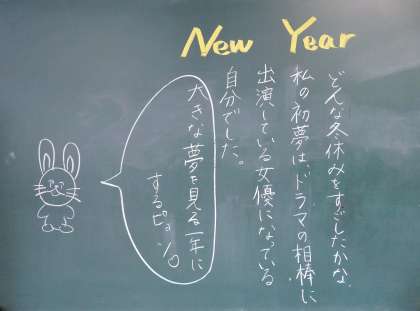 New Year
どんな冬休みをすごしたかな
私の初夢はドラマの相棒に
出演している女優になっている
自分でした。
大きな夢を見る一年に
するピョン。